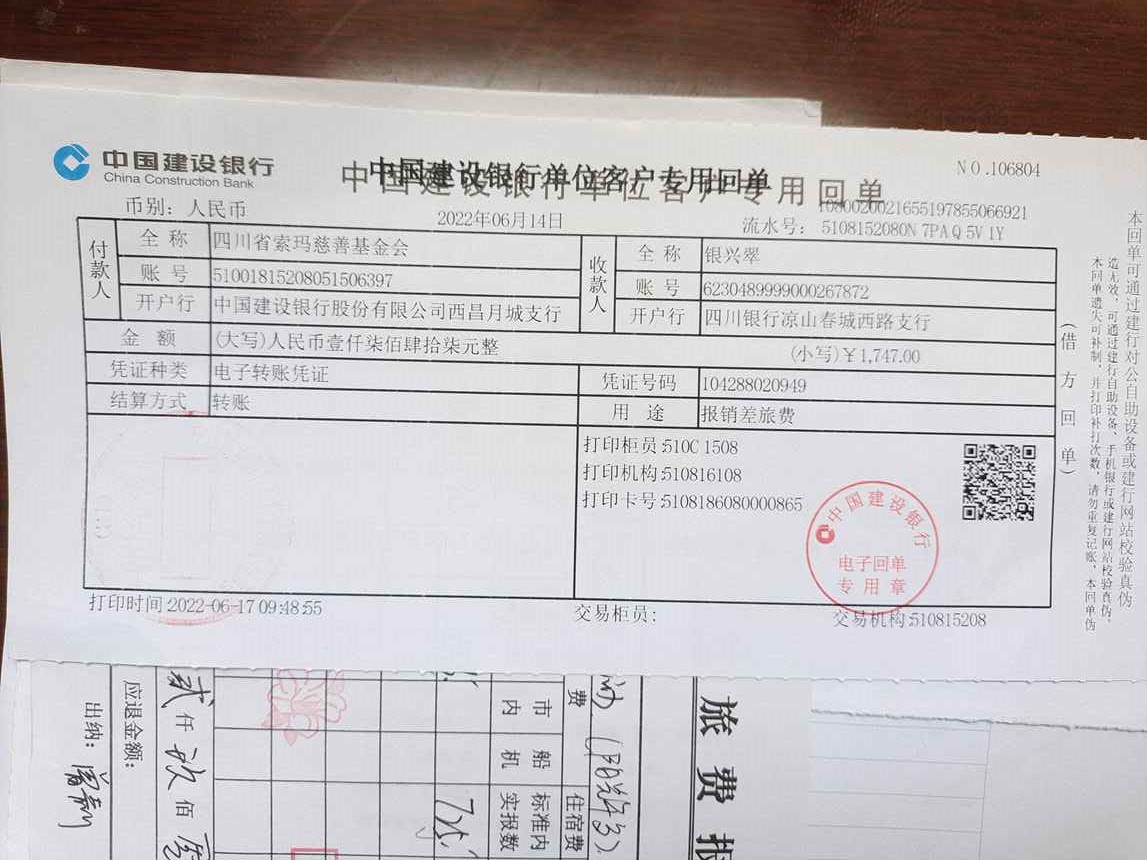 中国建设银行
China Construction Bank
中国建设银行单位客户专用回单
中国建设银行单位客户专用回单
NO.106804
币别：人民币
2022年06月14日
1080020021655197855066921
流水号：5108152080N7PAQ5V1Y
付款人
全称 四川省索玛慈善基金会
账号 51001815208051506397
开户行 中国建设银行股份有限公司西昌月城支行
收款人
全称 银兴翠
账号 6230489999000267872
开户行 四川银行凉山春城西路支行
金额 (大写)人民币壹仟柒佰肆拾柒元整 (小写)￥1,747.00
凭证种类 电子转账凭证 凭证号码 104288020949
结算方式 转账 用途 报销差旅费
打印柜员:510C1508
打印机构:510816108
打印卡号:5108186080000865
中国建设银行
电子回单
专用章
打印时间:2022-06-17 09:48:55
交易柜员:
交易机构:510815208
（借方回单）
本回单可通过建行对公自助设备或建行网站校验真伪
造无效，可通过建行自助设备、手机银行或建行网站校验真伪，
本回单遗失可补制，并打印补打次数，请勿重复记账，本回单伪
旅费报
费
住宿费
市内
船机
标准内
实报数
贰仟玖佰
应退金额：
出纳：